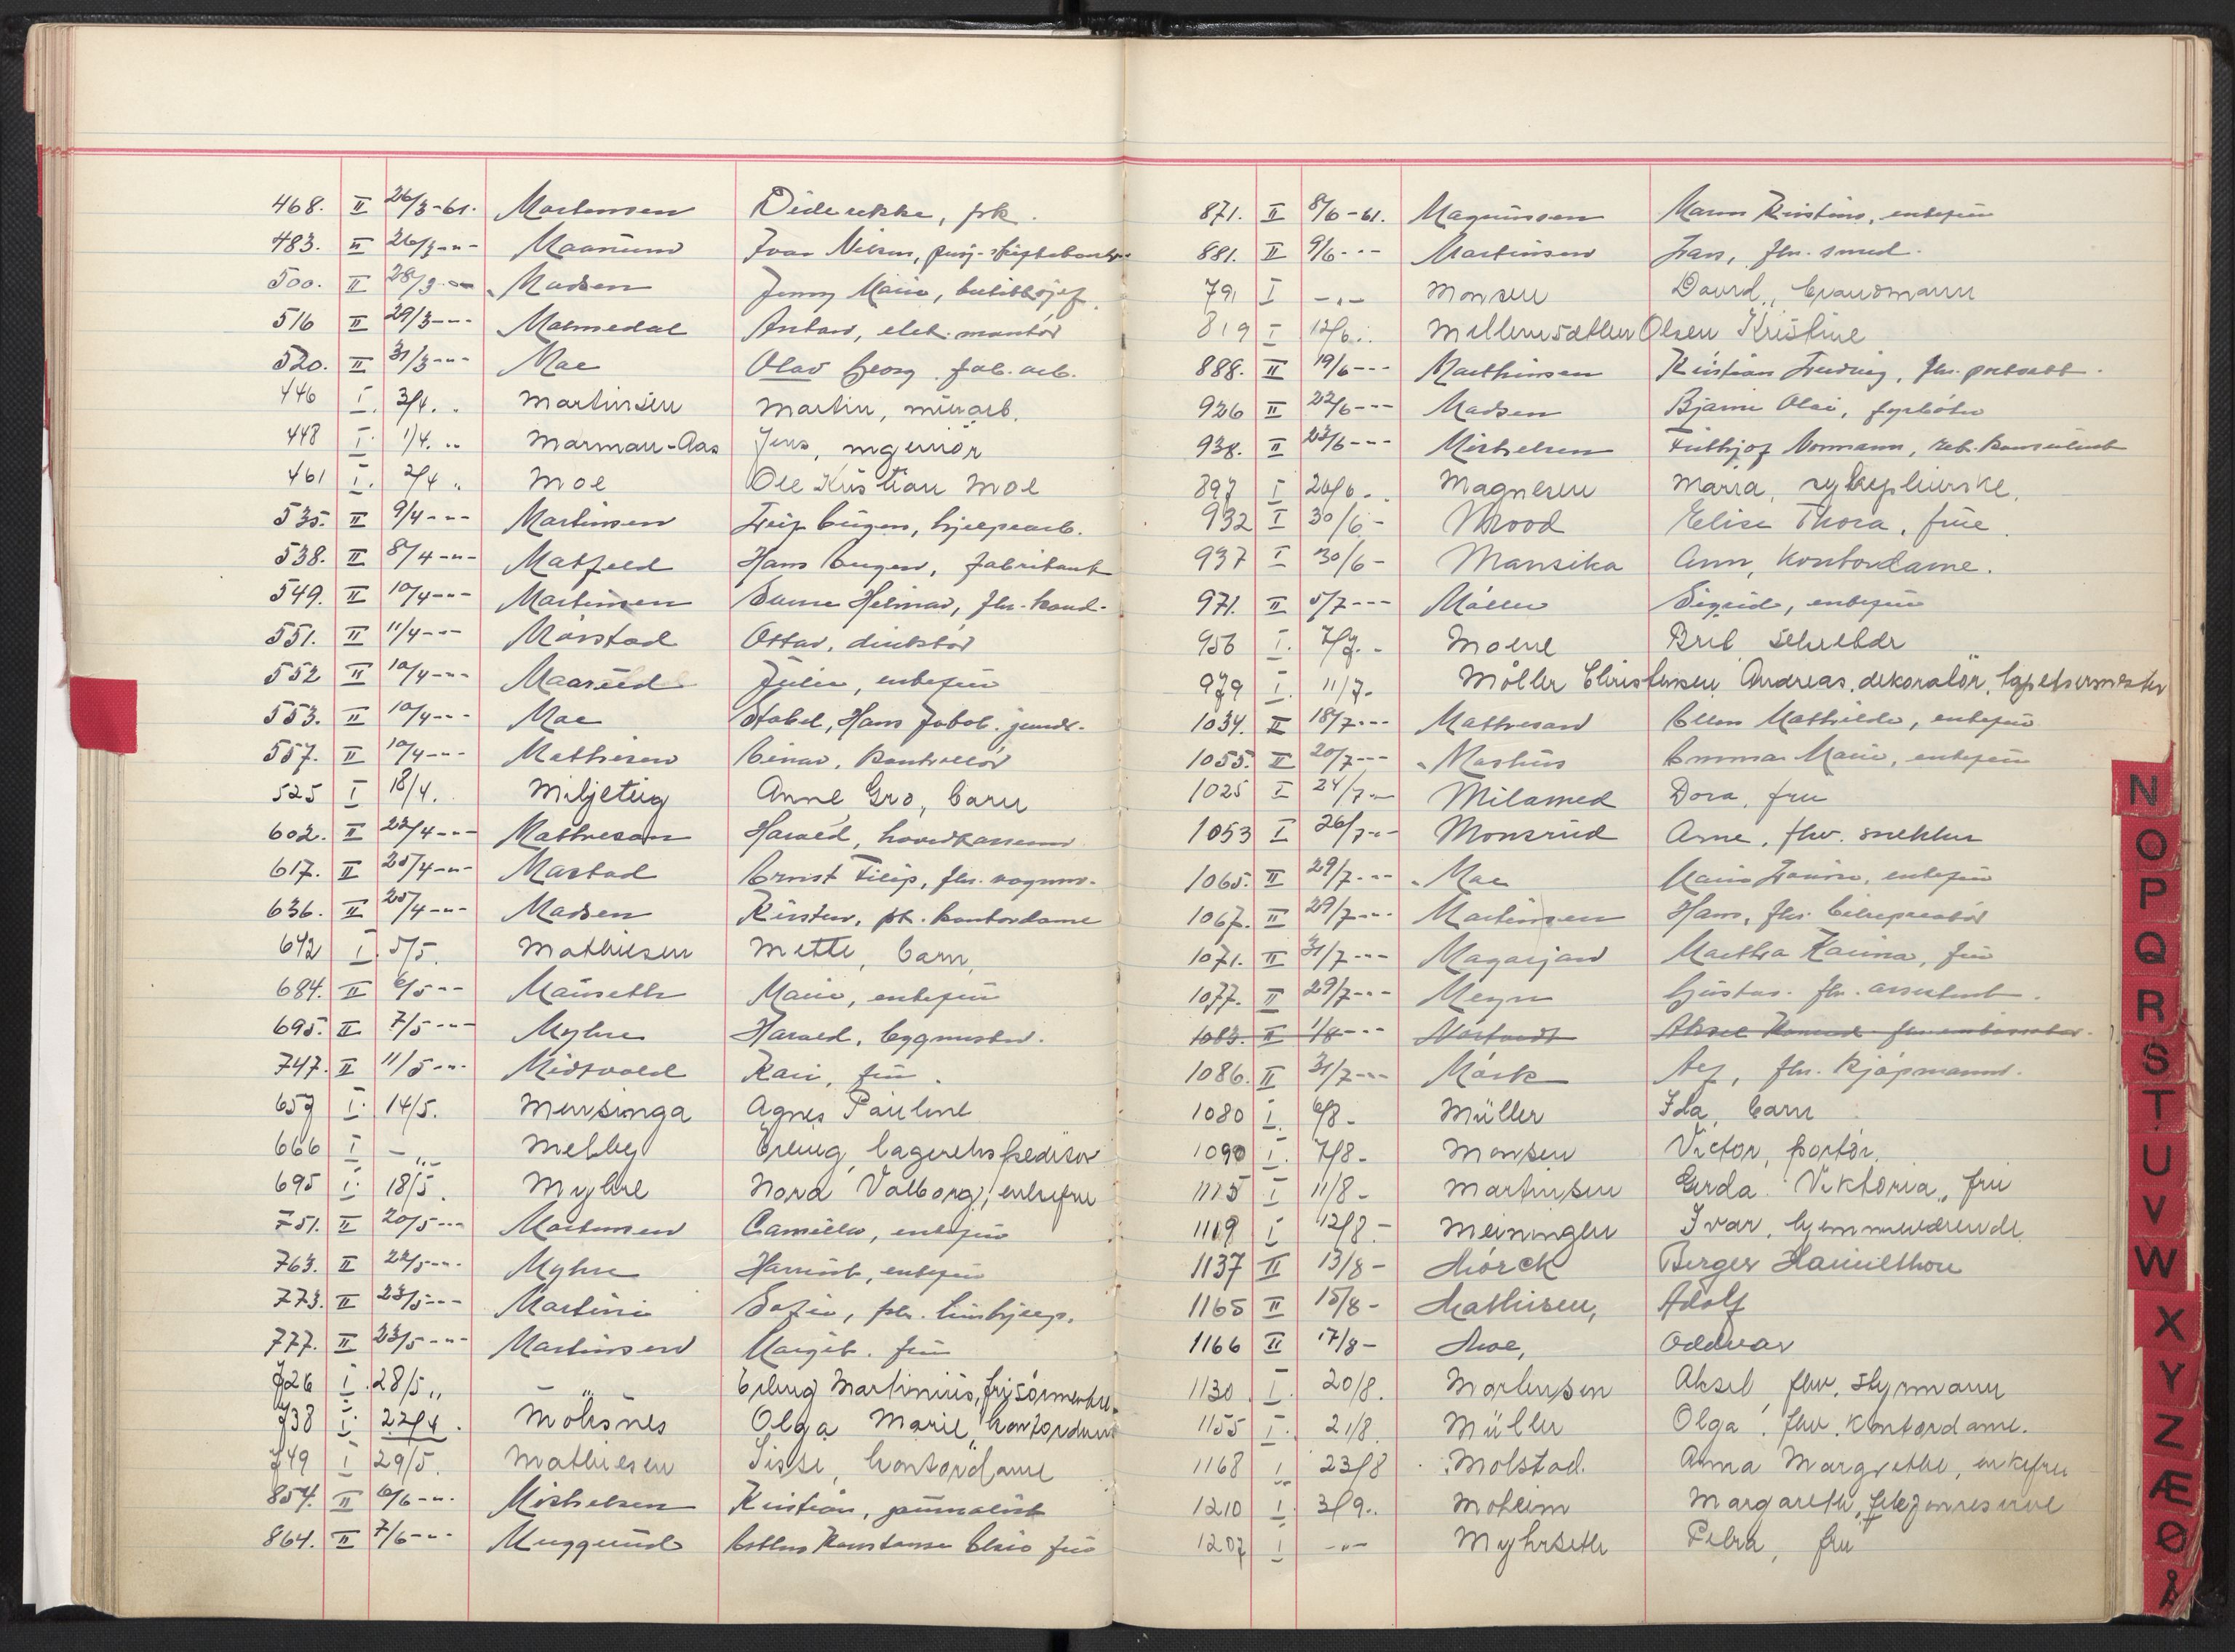 468. II 26/3-61. Martensen Diderikke, frk.
483. II 26/3-"- Maarum Ivar Nilsen,
500. II 28/3-"- Madsen Jenny Marie,
516 II 29/3-"- Malmedal Anton, elek. montør
520. II 31/3-"- Moe Olav Georg fab. arb.
446 I. 3/4. " Martinsen Martin, murarb.
448 I. 1/4. " Marman-Aas Jens, ingeniør
461 I. 2/4 " Moe Ole Kristian Moe
535. II 9/4-"- Martinsen Leif Eugen, hjelpearb.
538. II 8/4-"- Matzfeld Hans Eugen, fabrikant
549. II 10/4-"- Martinsen Hilmar, fhv. kond.
551. II 11/4-"- Mørstad Ottar, direktør
552 II 10/4-"- Maarud Julie, enkefru
553. II 10/4-"- Moe Stabel, Hans Jakob.
557. II 10/4-"- Mathiesen Einar, kontrollør
525 I 18/4. Miljeteig Anne Gro, barn
602. II 22/4-"- Mathiesen Harald, hovedkasserer
617. II 25/4-"- Marstad Ernst Filip, fhv. vognm.
636. II 25/4-"- Madsen Kirsten, frk. kontordame
642 I. 5/5. Mathiesen Mette, barn,
684. II 6/5-"- Mauseth Marie, enkefru
695. II 7/5-"- Myhre Harald, byggmester.
747. II 11/5-"- Midtvold Kari, fru.
657 I. 14/5. Mensinga Agnes Pauline
666 I -"- Melby Erling, lagerekspeditør
695 I. 18/5. Myhre Nora Valborg, enkefru
751. II 20/5-"- Martinsen Camilla, enkefru
763. II 22/5-"- Myhre Harriet, enkefru
773. II 23/5-"- Martini Sofie, frk.
777. II 23/5-"- Martinsen Margit. fru
726 I. 28/5 " - " - Erling Martinius, frisørmester.
738 I. 22/4. Moksnes Olga Marie, kontordame
749 I 29/5. Mathiesen Sissi, kontordame
854. II 6/6-"- Michelsen Kristian, journalist
864. II 7/6-"- Muggerud Konstanse fru
871. II 8/6-61. Magnussen Maren Kristine, enkefru
881. II 9/6-"- Martinsen Lars, fhv. smed.
791 I -"- Monsen David, brandmann
819 I 12/6. " Mellemsætter Olsen Kristine
888. II 19/6-"- Marthinsen Kristian Ludvig, fhv.
926 II 22/6-"- Madsen Bjarne Olai, fyrbøter
938. II 23/6-"- Michelsen Fridtjof Normann, rek. konsulent
897 I 26/6. " Magnesen Maria, sykepleierske.
932 I 30/6- Mood Elise Thora, frue.
937 I 30/6- Mansika Ann, kontordame.
971. II 5/7-"- Møller Sigrid, enkefru
956 I. 7/7. - Moene Brit
979 I. 11/7- Møller Christensen, Andreas, dekoratør, tapetsermester
1034. II 18/7-"- Mathiesen Ellen Mathilde, enkefru
1055. II 20/7-"- Martins Emma Marie, enkefru
1025 I 24/7- Milamed Dora, fru
1053 I 26/7- Monsrud Arne, fhv. snekker
1065. II 29/7-"- Moe Marie Lovise, enkefru
1067. II 29/7-"- Martinsen Hans, fhv. bilreparatør
1071. II 31/7-"- Magarjan Martha Karina, fru
1077. II 29/7-"- Meyn Gustav. fhv. assistent.
1083. II 1/8-"- Aksel
1086. II 31/7-"- Mørk Alf, fhv. kjøpmann.
1080 I. 6/8- Müller Ida, barn
1090 I. 7/8- Monsen Victor, portør.
1115 I 11/8- Martinsen Gerda Viktoria, fru
1119 I 12/8- Meininger Ivar, hjemmeværende
1137 II 13/8- Mørck Birger Hamilthon
1165 II 15/8- Mathisen, Adolf
1166 II 17/8- Moe, Oddvar
1130 I. 20/8. Mortensen Aksel fhv. styrmann
1155 I. 21/8. Müller Olga, fhv. kontordame.
1168 I 23/8 Molstad. Anna Margrethe, enkefru
1210 I. 3/9.. Moheim Margarethe,
1207 I -"- Myhrseth Petra, fru
N
O
P
Q
R
S
T
U
V
W
X
Y
Z
Æ
Ø
Å